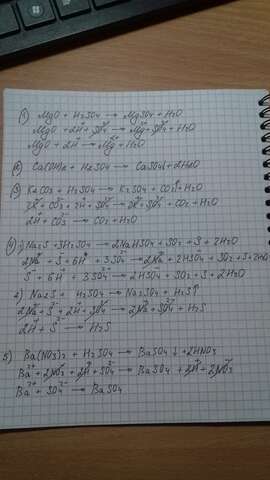 1) MgO + H₂SO₄ → MgSO₄ + H₂O
MgO + 2H⁺ + SO₄²⁻ → Mg²⁺ + SO₄²⁻ + H₂O
MgO + 2H⁺ → Mg²⁺ + H₂O
2) Ca(OH)₂ + H₂SO₄ → CaSO₄↓ + 2H₂O
3) K₂CO₃ + H₂SO₄ → K₂SO₄ + CO₂↑ + H₂O
2K⁺ + CO₃²⁻ + 2H⁺ + SO₄²⁻ → 2K⁺ + SO₄²⁻ + CO₂ + H₂O
2H⁺ + CO₃²⁻ → CO₂ + H₂O
4) 1) Na₂S + 3H₂SO₄ → 2NaHSO₄ + SO₂ + S + 2H₂O
2Na⁺ + S²⁻ + 6H⁺ + 3SO₄²⁻ → 2Na⁺ + 2HSO₄⁻ + SO₂ + S + 2H₂O
S²⁻ + 6H⁺ + 3SO₄²⁻ → 2HSO₄⁻ + SO₂ + S + 2H₂O
2) Na₂S + H₂SO₄ → Na₂SO₄ + H₂S↑
2Na⁺ + S²⁻ + 2H⁺ + SO₄²⁻ → 2Na⁺ + SO₄²⁻ + H₂S
2H⁺ + S²⁻ → H₂S
5) Ba(NO₃)₂ + H₂SO₄ → BaSO₄↓ + 2HNO₃
Ba²⁺ + 2NO₃⁻ + 2H⁺ + SO₄²⁻ → BaSO₄ + 2H⁺ + 2NO₃⁻
Ba²⁺ + SO₄²⁻ → BaSO₄